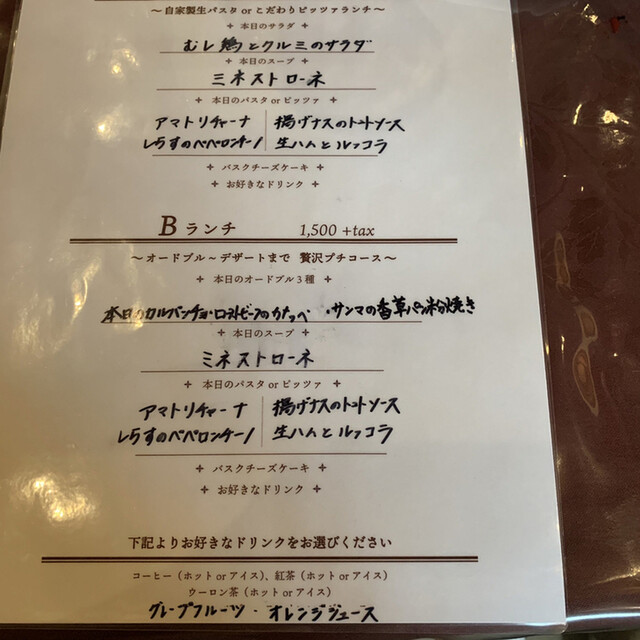 ～自家製生パスタ or こだわりピッツァランチ～
+ 本日のサラダ +
むし鶏とクルミのサラダ
+ 本日のスープ +
ミネストローネ
+ 本日のパスタ or ピッツァ +
アマトリチャーナ 揚げナスのトマトソース
しらすのペペロンチーノ 生ハムとルッコラ
+ バスクチーズケーキ +
+ お好きなドリンク +
B ランチ 1,500 +tax
～オードブル～デザートまで 贅沢プチコース～
+ 本日のオードブル3種 +
本日のカルパッチョ・ローストビーフのカナッペ ・サンマの香草パン粉焼き
+ 本日のスープ +
ミネストローネ
+ 本日のパスタ or ピッツァ +
アマトリチャーナ 揚げナスのトマトソース
しらすのペペロンチーノ 生ハムとルッコラ
+ バスクチーズケーキ +
+ お好きなドリンク +
下記よりお好きなドリンクをお選びください
コーヒー（ホット or アイス）、紅茶（ホット or アイス）
ウーロン茶（ホット or アイス）
グレープフルーツ・オレンジジュース